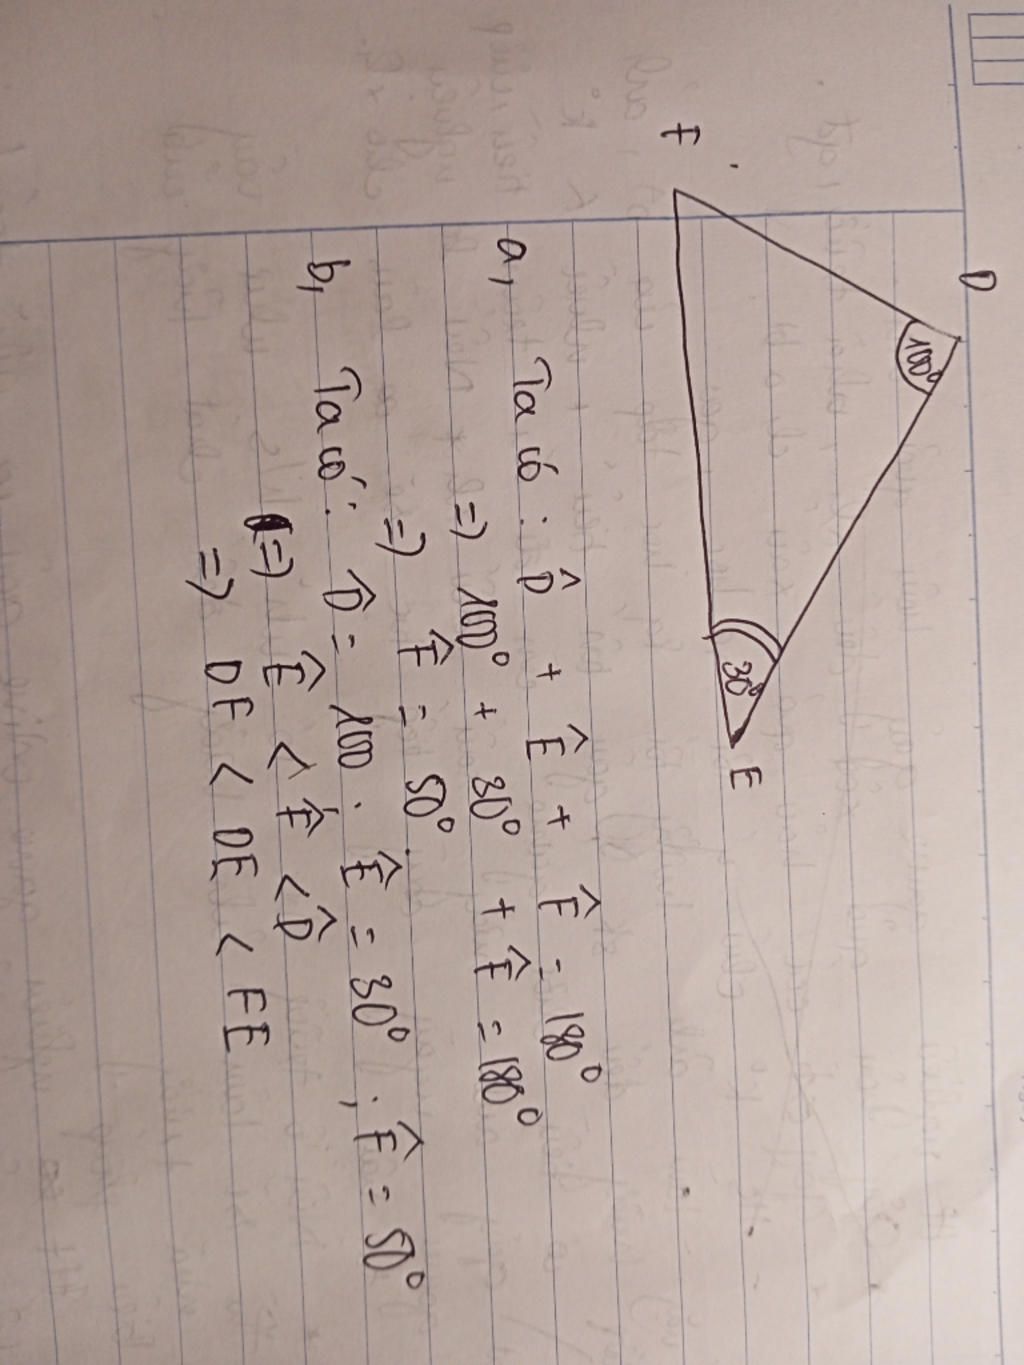 D
100°
F
30°
E
a, Ta có : D̂ + Ê + F̂ = 180°
=> 100° + 30° + F̂ = 180°
=> F̂ = 50°.
b, Ta có : D̂ = 100 . Ê = 30° ; F̂ = 50°
=> Ê < F̂ < D̂
=> DF < DE < FE